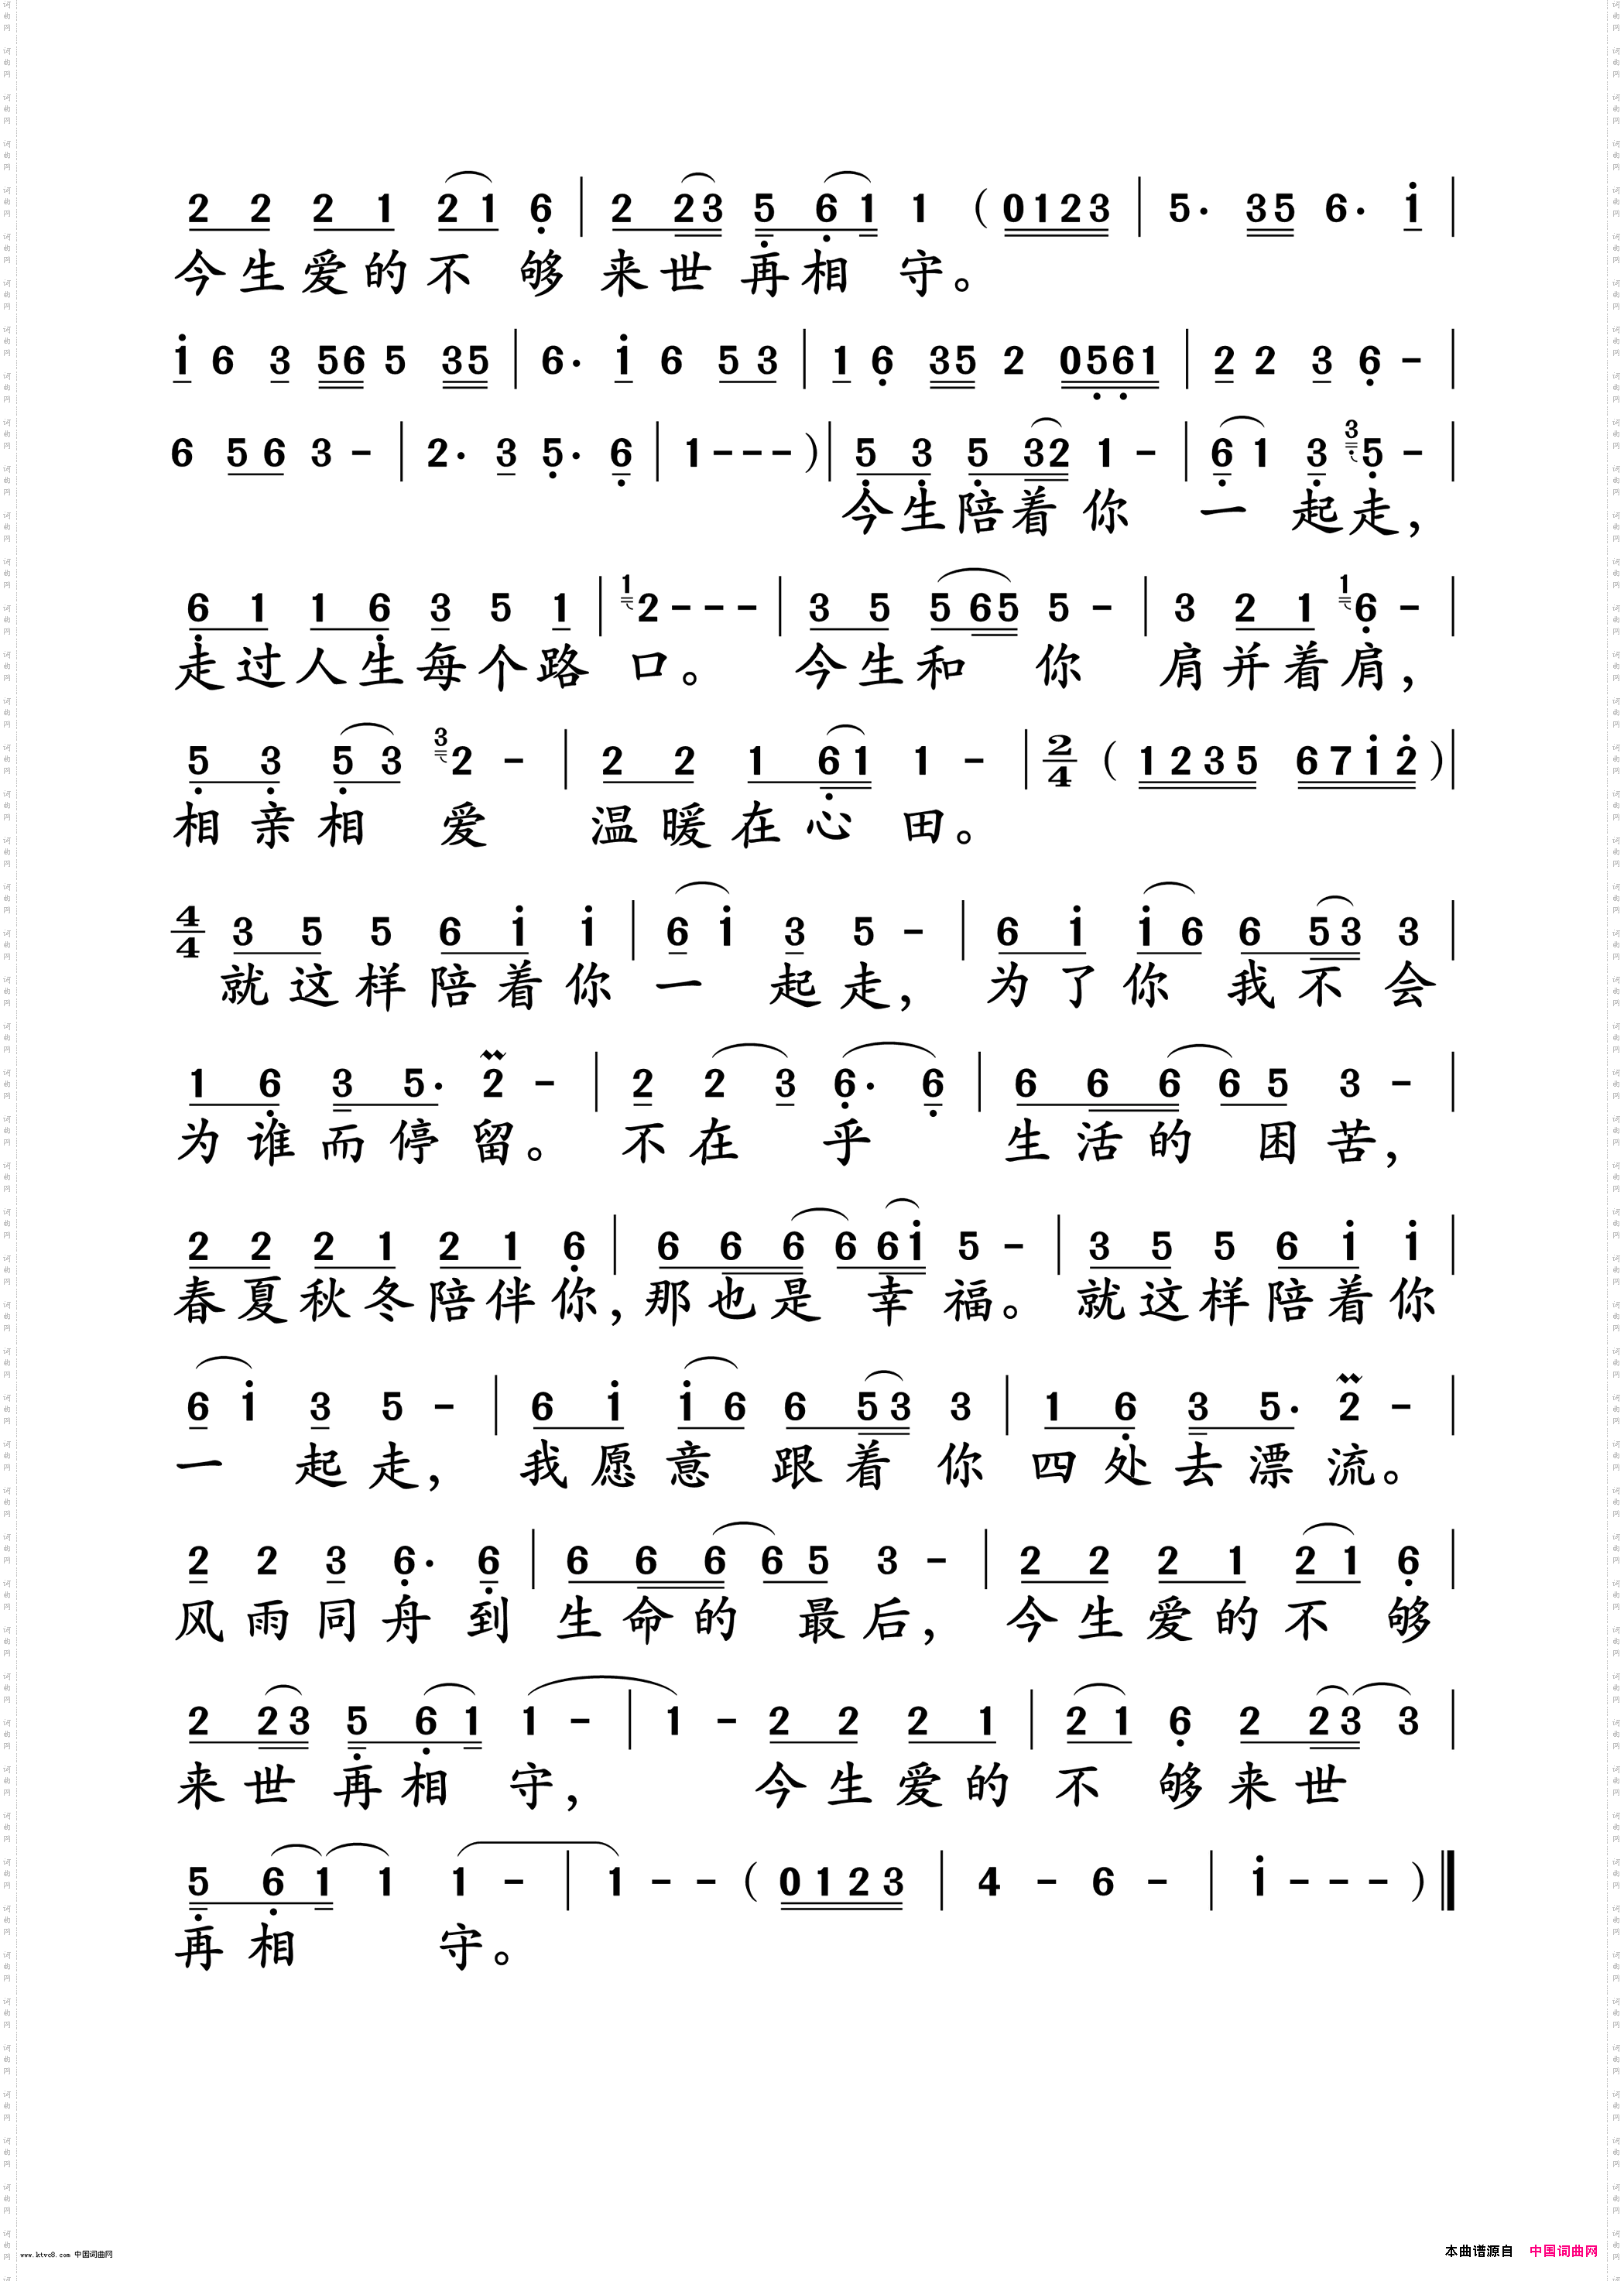 2 2 2 1 2 1 6 | 2 2 3 5 6 1 1 ( 0 1 2 3 | 5 · 3 5 6 · 1 |
今生爱的不够 来世再相守。
1 6 3 5 6 5 3 5 | 6 · 1 6 5 3 | 1 6 3 5 2 0 5 6 1 | 2 2 3 6 - |
6 5 6 3 - | 2 · 3 5 · 6 | 1 - - - ) | 5 3 5 3 2 1 - | 6 1 3 3 5 - |
今生陪着你 一起走，
6 1 1 6 3 5 1 | 1 2 - - - | 3 5 5 6 5 5 - | 3 2 1 1 6 - |
走过人生每个路口。 今生和你 肩并着肩，
5 3 5 3 3 2 - | 2 2 1 6 1 1 - | 2/4 ( 1 2 3 5 6 7 1 2 ) |
相亲相爱 温暖在心田。
4/4 3 5 5 6 1 1 | 6 1 3 5 - | 6 1 1 6 6 5 3 3 |
就这样陪着你 一起走， 为了你 我不会
1 6 3 5 · 2 - | 2 2 3 6 · 6 | 6 6 6 6 5 3 - |
为谁而停留。 不在乎 生活的困苦，
2 2 2 1 2 1 6 | 6 6 6 6 6 1 5 - | 3 5 5 6 1 1 |
春夏秋冬陪伴你，那也是幸福。 就这样陪着你
6 1 3 5 - | 6 1 1 6 6 5 3 3 | 1 6 3 5 · 2 - |
一起走， 我愿意 跟着你 四处去漂流。
2 2 3 6 · 6 | 6 6 6 6 5 3 - | 2 2 2 1 2 1 6 |
风雨同舟到 生命的最后， 今生爱的不够
2 2 3 5 6 1 1 - | 1 - 2 2 2 1 | 2 1 6 2 2 3 3 |
来世再相守， 今生爱的 不够来世
5 6 1 1 1 - | 1 - - ( 0 1 2 3 | 4 - 6 - | 1 - - - ) ‖
再相守。
www.ktvc8.com 中国词曲网
本曲谱源自 中国词曲网